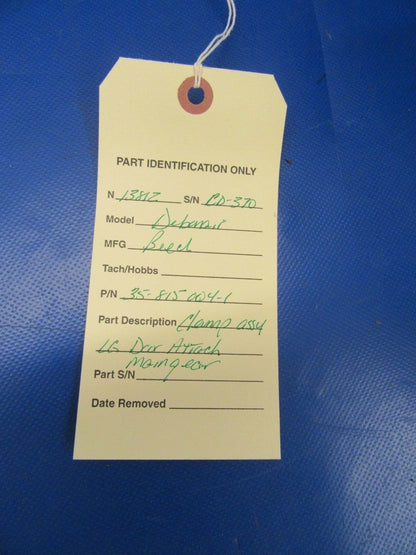 PART IDENTIFICATION ONLY
N 1381Z S/N CD-370
Model Debonair
MFG Beech
Tach/Hobbs
P/N 35-815004-1
Part Description Clamp assy
LG Door Attach
Main gear
Part S/N
Date Removed